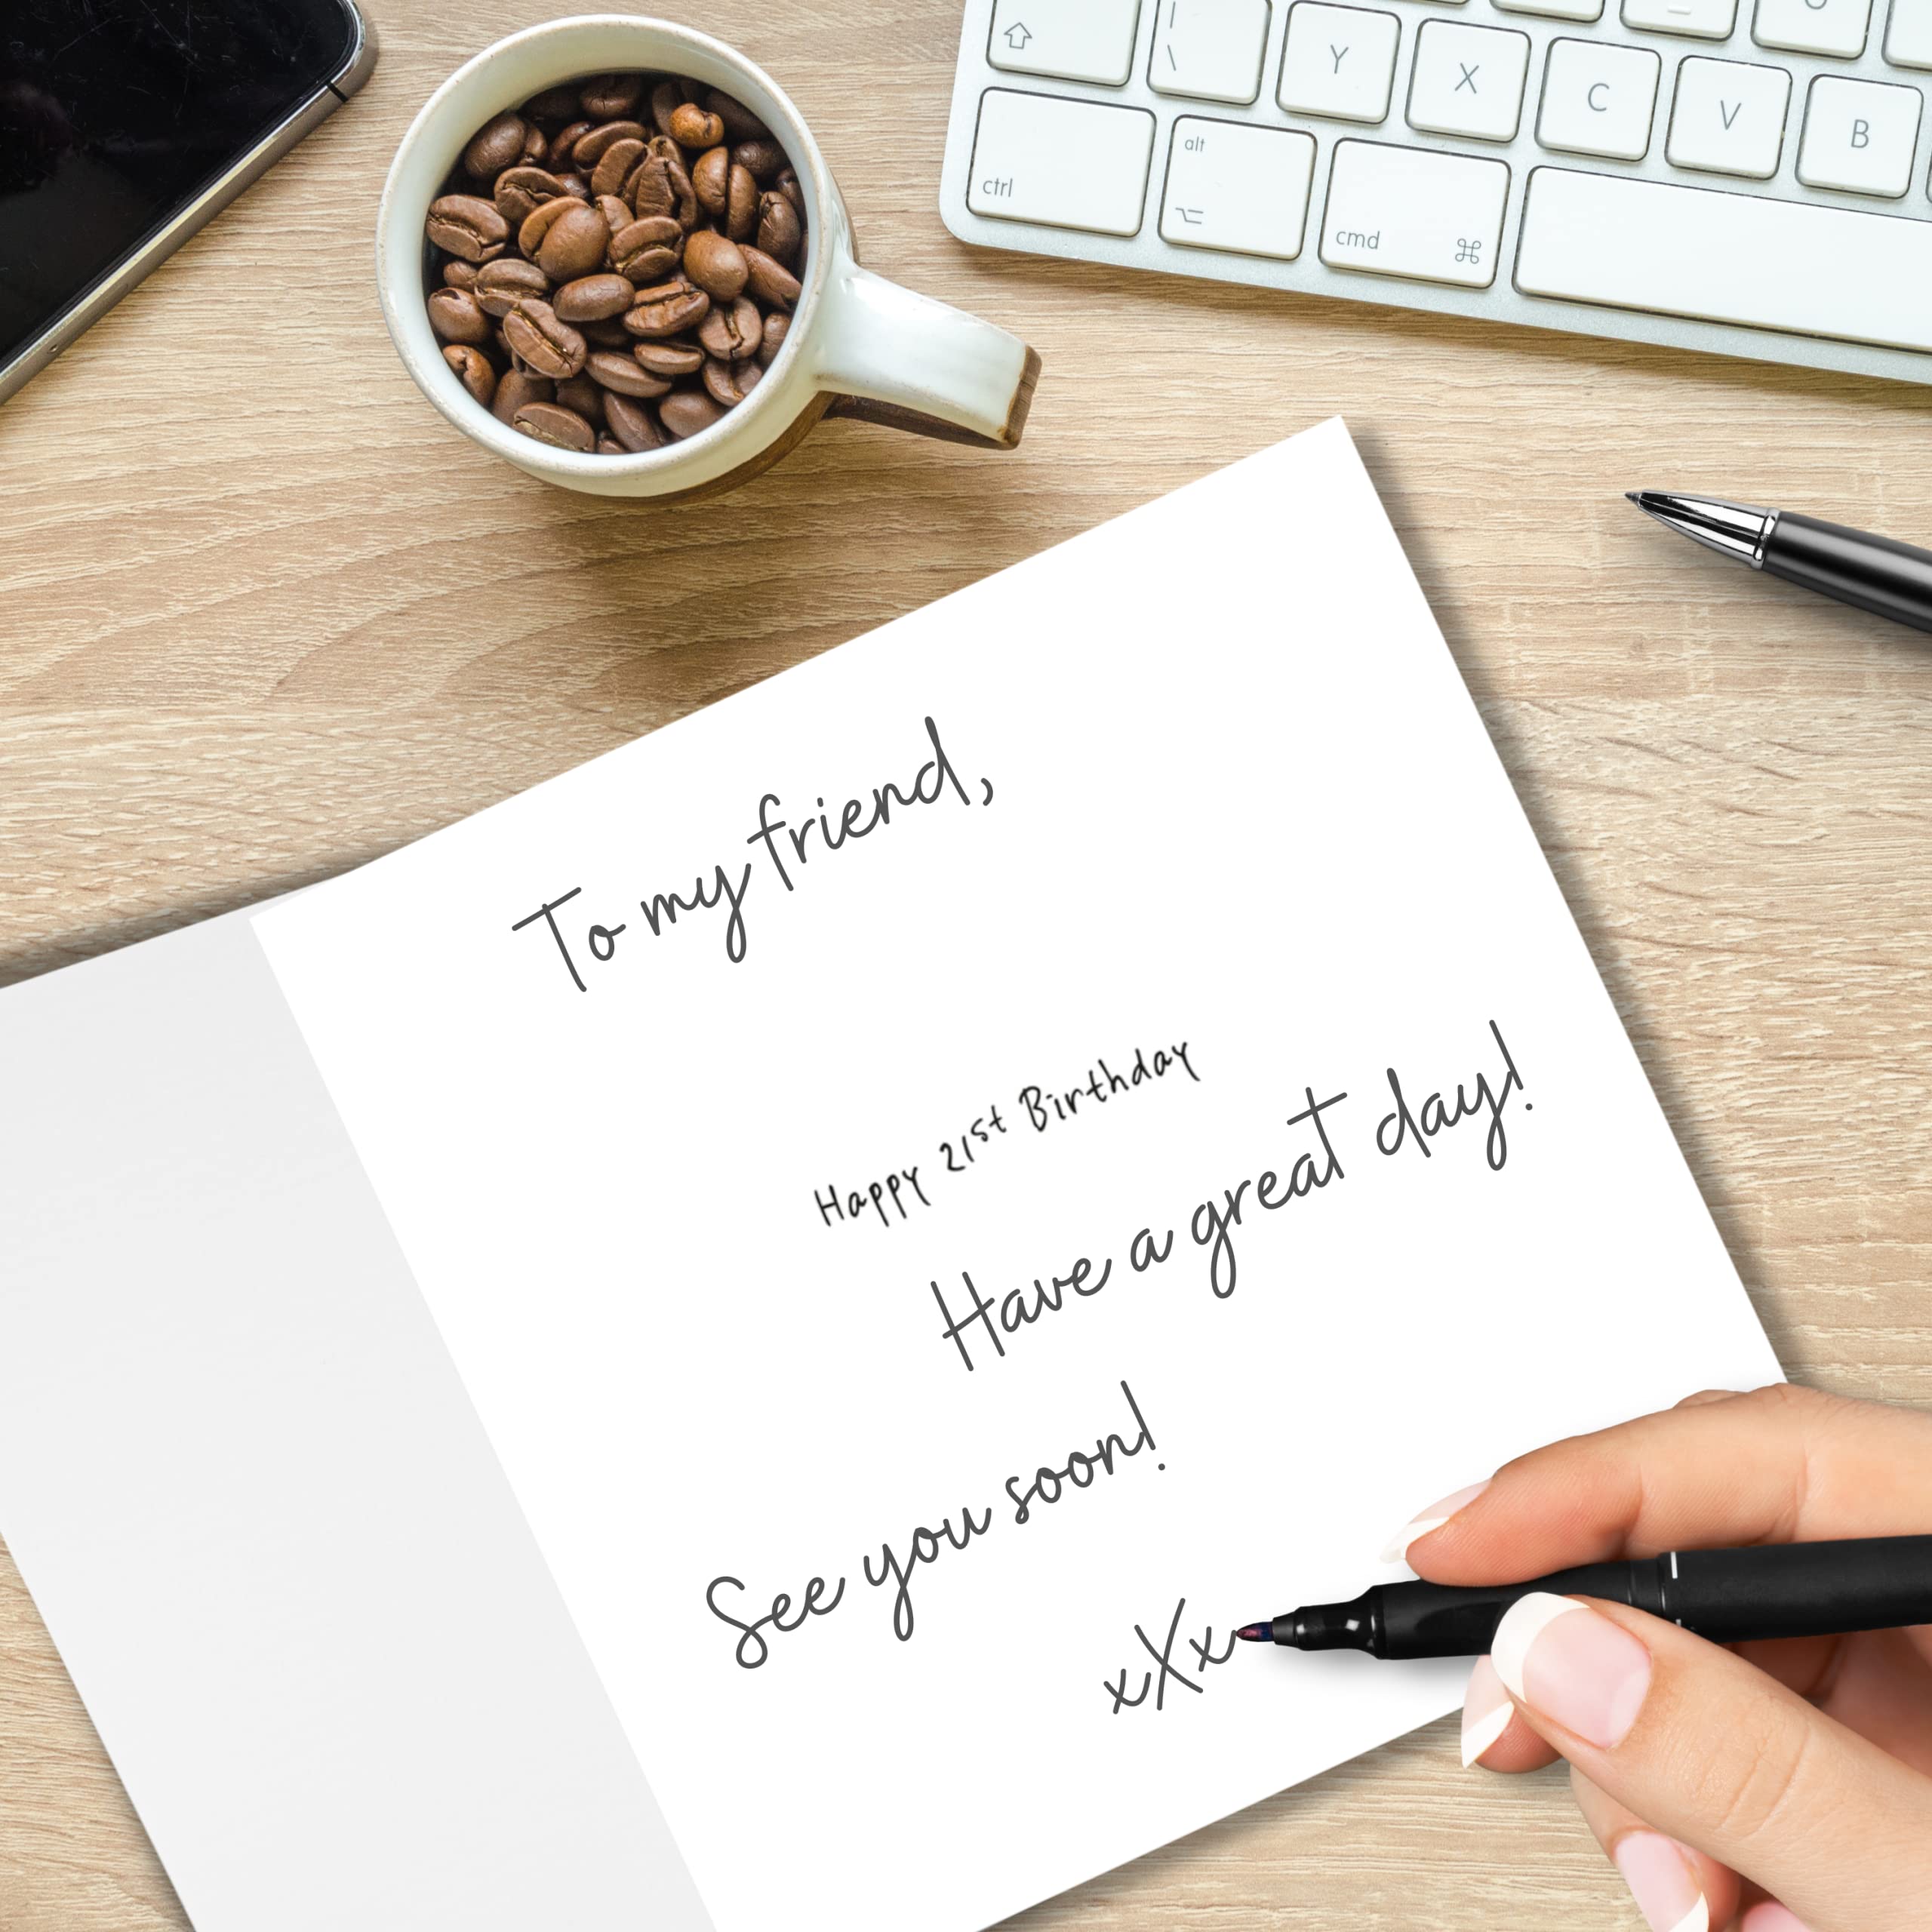 | \
Y X C V B
ctrl alt cmd ⌘
To my friend,
Happy 21st Birthday
Have a great day!
See you soon!
xXx